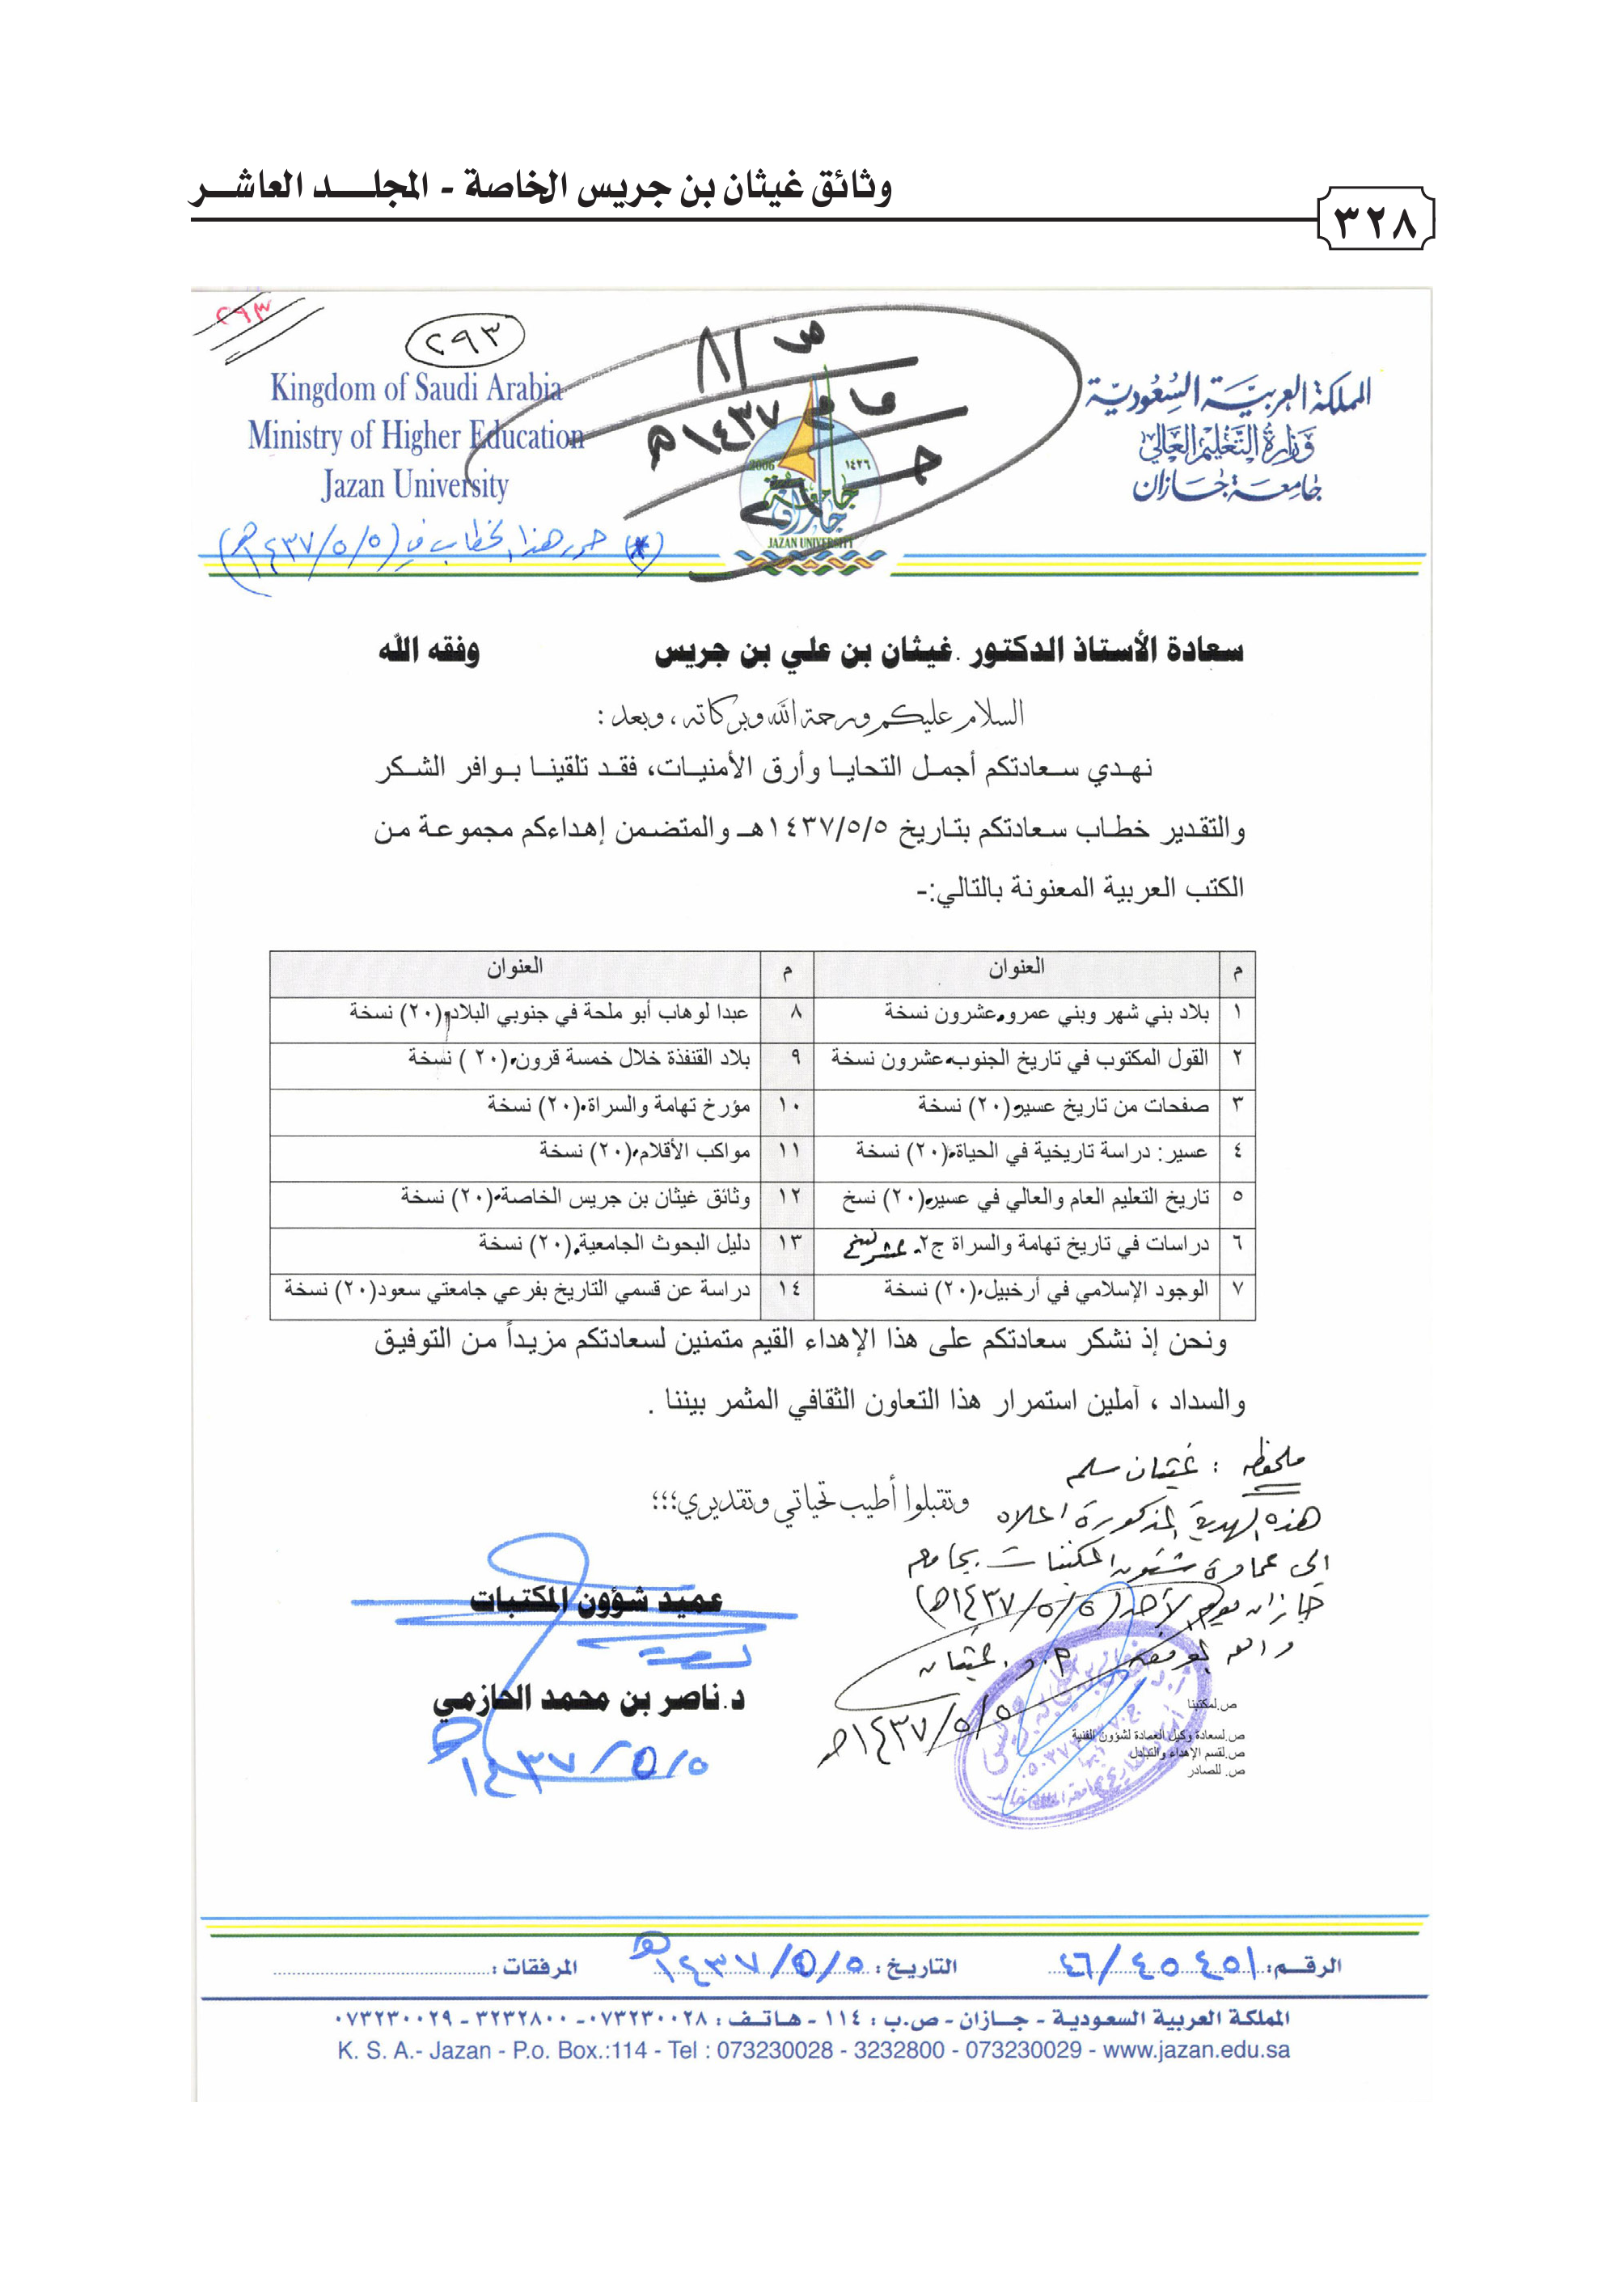 وثائق غيثان بن جريس الخاصة - المجلـــد العاشـــر
٣٢٨
٢٩٣
٢٩٣
ص / ٨
عام ١٤٣٧هـ
المملكة العربية السعودية
وزارة التعليم العالي
جامعة جازان
Kingdom of Saudi Arabia
Ministry of Higher Education
Jazan University
2006 ١٤٢٦
جامعة جازان
JAZAN UNIVERSITY
(*) حرر هذا الخطاب في (١٤٣٧/٥/٥هـ)
سعادة الأستاذ الدكتور . غيثان بن علي بن جريس وفقه الله
السلام عليكم ورحمة الله وبركاته ، وبعد :
نهدي سعادتكم أجمل التحايا وأرق الأمنيات، فقد تلقينا بوافر الشكر
والتقدير خطاب سعادتكم بتاريخ ١٤٣٧/٥/٥هـ والمتضمن إهداءكم مجموعة من
الكتب العربية المعنونة بالتالي:-
م العنوان م العنوان
١ بلاد بني شهر وبني عمرو. عشرون نسخة ٨ عبدا لوهاب أبو ملحة في جنوبي البلاد (٢٠) نسخة
٢ القول المكتوب في تاريخ الجنوب. عشرون نسخة ٩ بلاد القنفذة خلال خمسة قرون. (٢٠ ) نسخة
٣ صفحات من تاريخ عسير (٢٠) نسخة ١٠ مؤرخ تهامة والسراة. (٢٠) نسخة
٤ عسير: دراسة تاريخية في الحياة. (٢٠) نسخة ١١ مواكب الأقلام. (٢٠) نسخة
٥ تاريخ التعليم العام والعالي في عسير (٢٠) نسخ ١٢ وثائق غيثان بن جريس الخاصة. (٢٠) نسخة
٦ دراسات في تاريخ تهامة والسراة ج٢. عشر نسخ ١٣ دليل البحوث الجامعية. (٢٠) نسخة
٧ الوجود الإسلامي في أرخبيل. (٢٠) نسخة ١٤ دراسة عن قسمي التاريخ بفرعي جامعتي سعود (٢٠) نسخة
ونحن إذ نشكر سعادتكم على هذا الإهداء القيم متمنين لسعادتكم مزيداً من التوفيق
والسداد ، آملين استمرار هذا التعاون الثقافي المثمر بيننا .
وتقبلوا أطيب تحياتي وتقديري؛؛؛
ملحوظة : غيثان سلم
هذه الهدية المذكورة اعلاه
الى عمادة شئون المكتبات بجامعة
جازان يوم الأحد (١٤٣٧/٥/٥هـ)
والله يحفظه أ. د. غيثان
١٤٣٧/٥/٥هـ
عميد شؤون المكتبات
د. ناصر بن محمد الحازمي
١٤٣٧/٥/٥هـ
ص.لمكتبنا
ص.لسعادة وكيل العمادة لشؤون الفنية
ص.لقسم الإهداء والتبادل
ص. للصادر
الرقـم: ٤٦/٤٥٤٥١ التاريخ : ١٤٣٧/٥/٥هـ المرفقات :
المملكة العربية السعودية - جــازان - ص.ب : ١١٤ - هـاتـف : ٠٧٣٢٣٠٠٢٨ - ٣٢٣٢٨٠٠ - ٠٧٣٢٣٠٠٢٩
K. S. A.- Jazan - P.o. Box.:114 - Tel : 073230028 - 3232800 - 073230029 - www.jazan.edu.sa